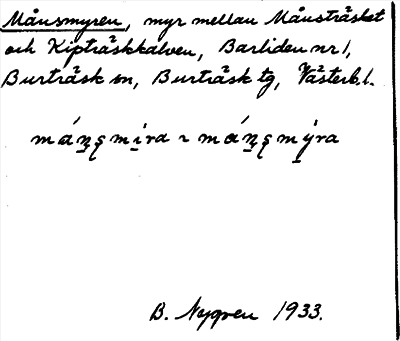 Månsmyren, myr mellan Månsträsket
och Kipträskkalven, Barliden nr 1,
Burträsk sn, Burträsk tg, Västerb. l.
B. Nygren 1933.